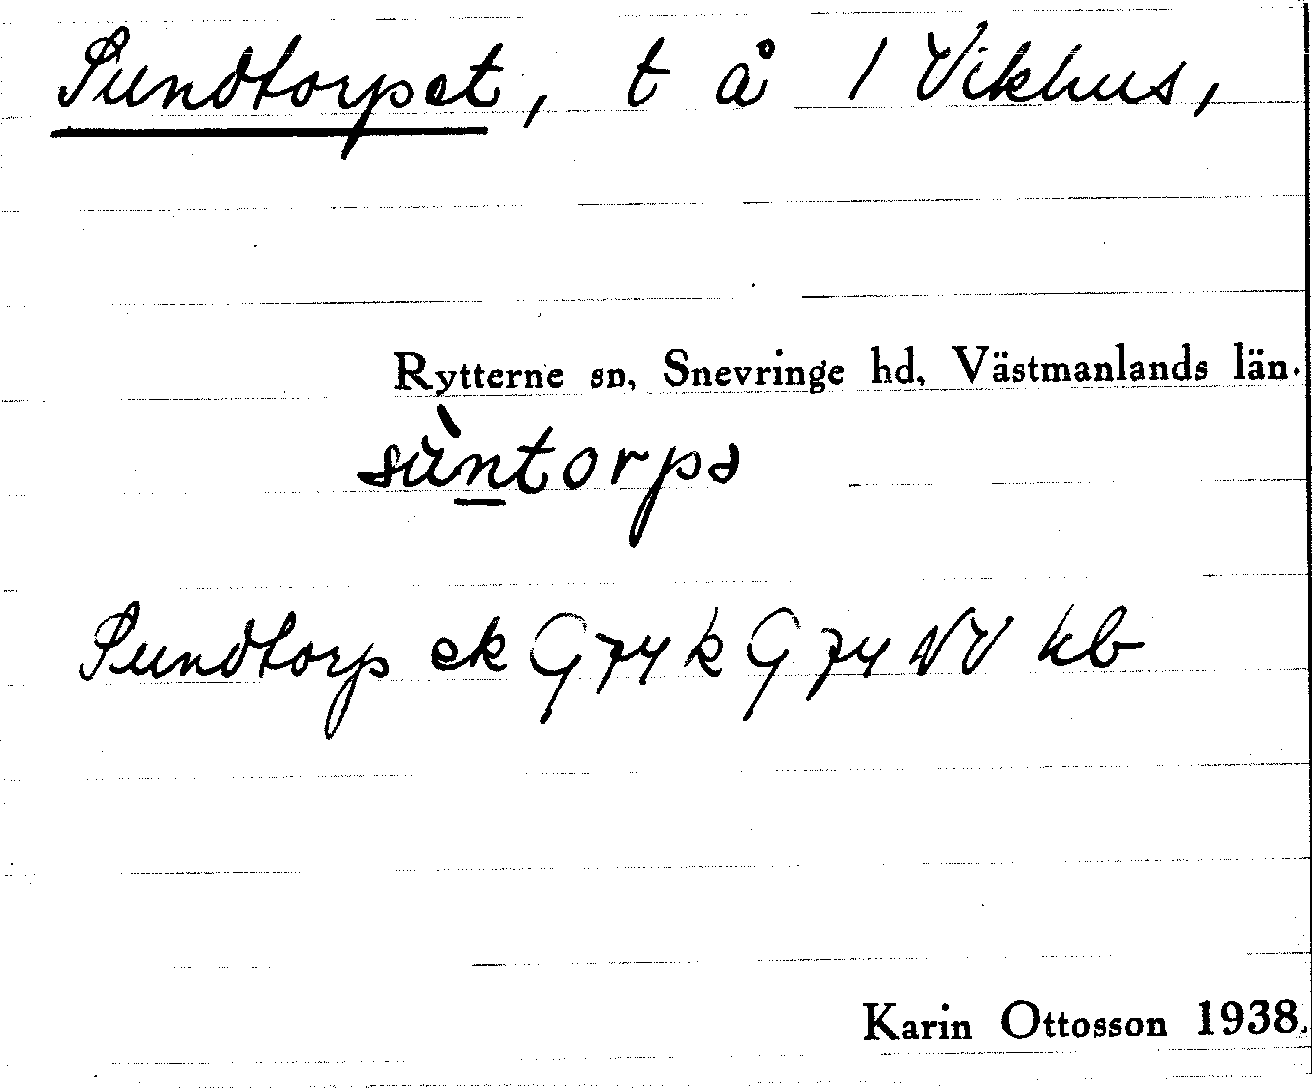 Sundtorpet, t å 1 Vikhus,
Rytterne sn, Snevringe hd, Västmanlands län.
sùntorpə
Sundtorp ek G 74 k G 74 NV kb
Karin Ottosson 1938.